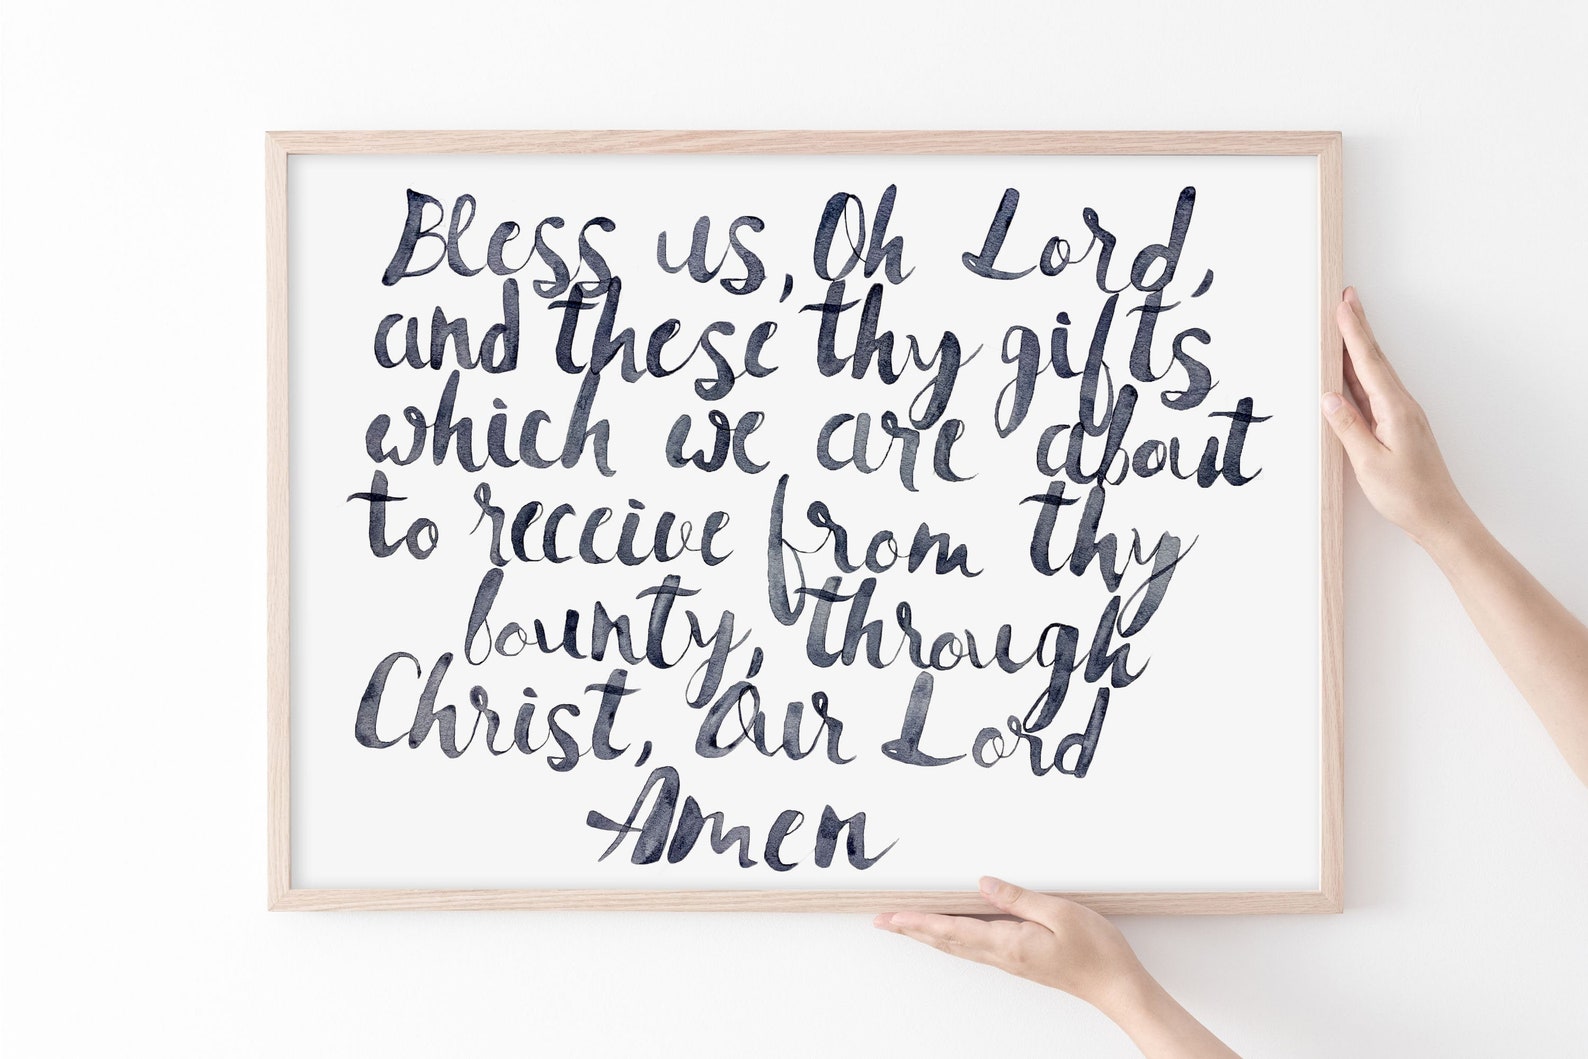 Bless us, Oh Lord,
and these thy gifts
which we are about
to receive from thy
bounty, through
Christ, Our Lord
Amen